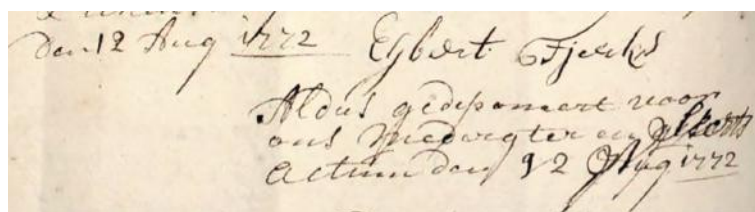 den 12 Aug 1772 Egbert Tjerks
Aldus gedeponeert voor
ons mederegter en
Actum den 12 Aug 1772